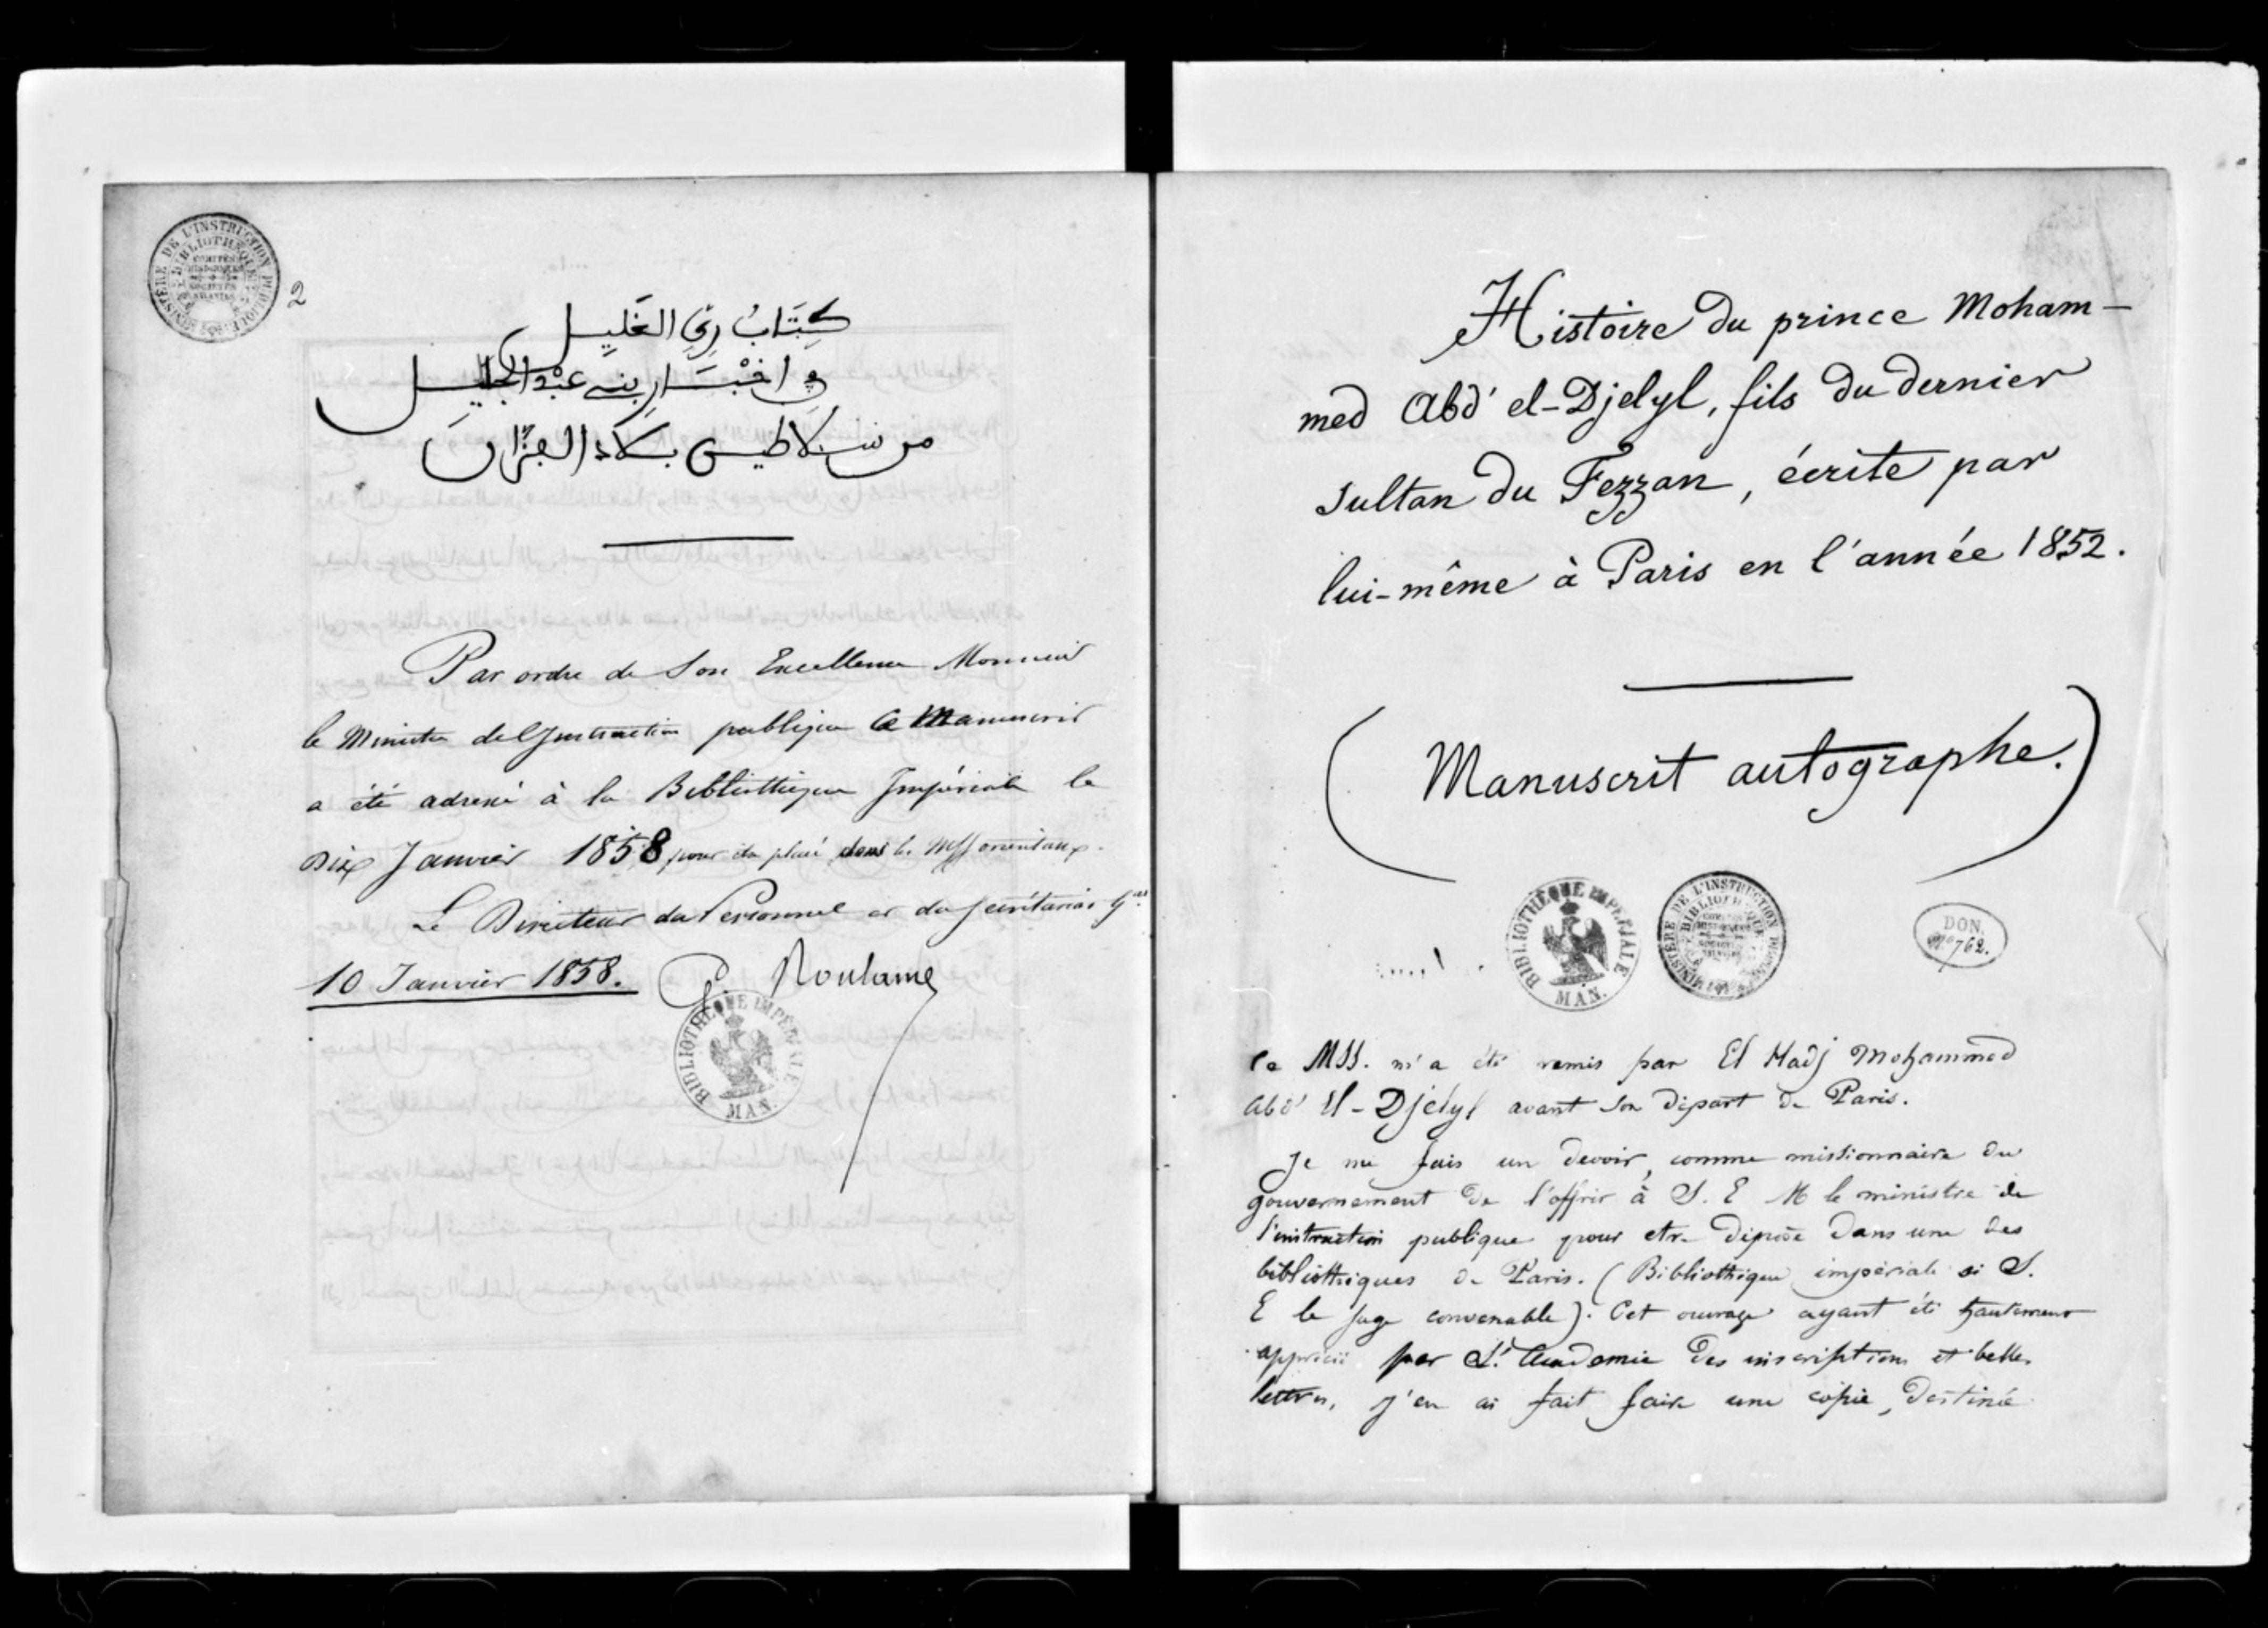 2
كِتَابُ رِيِّ الغَلِيلِ
ڢِي اخْبَارِ بنِي عَبْدِ الجَلِيلِ
من سلاطين بلاد الڢزّان
Par ordre de Son Excellence Monsieur
le Ministre de l'Instruction publique ce Manuscrit
a été adressé à la Bibliothèque Impériale le
Dix Janvier 1858 pour être placé dans les Mss orientaux.
Le Directeur du Personnel et du Secrétariat Gal
10 Janvier 1858. G. Roulame
MINISTÈRE DE L'INSTRUCTION PUBLIQUE
BIBLIOTHÈQUE
BIBLIOTHÈQUE IMPÉRIALE
MAN.
Histoire du prince Moham-
med Abd' el-Djelyl, fils du dernier
sultan du Fezzan, écrite par
lui-même à Paris en l'année 1852.
(Manuscrit autographe.)
BIBLIOTHÈQUE IMPÉRIALE
MAN.
MINISTÈRE DE L'INSTRUCTION PUBLIQUE
BIBLIOTHÈQUE
DON.
No 762.
Ce MSS. m'a été remis par El Hadj Mohammed
Abd' El-Djélyl avant son départ de Paris.
Je me fais un devoir, comme missionnaire du
gouvernement de l'offrir à S. E M le ministre de
l'instruction publique pour etre déposé dans une des
bibliothèques de Paris. (Bibliothèque impériale si S.
E le juge convenable). Cet ouvrage ayant été hautement
apprécié par L'Academie des inscriptions et belles
lettres, j'en ai fait faire une copie, destinée